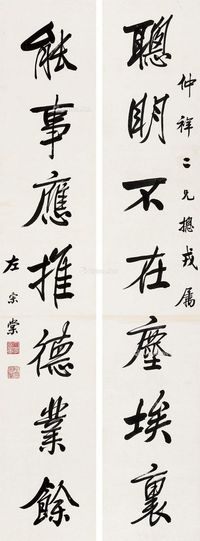 仲祥二兄總戎屬
聰明不在塵埃裏
能事應推德業餘
左宗棠